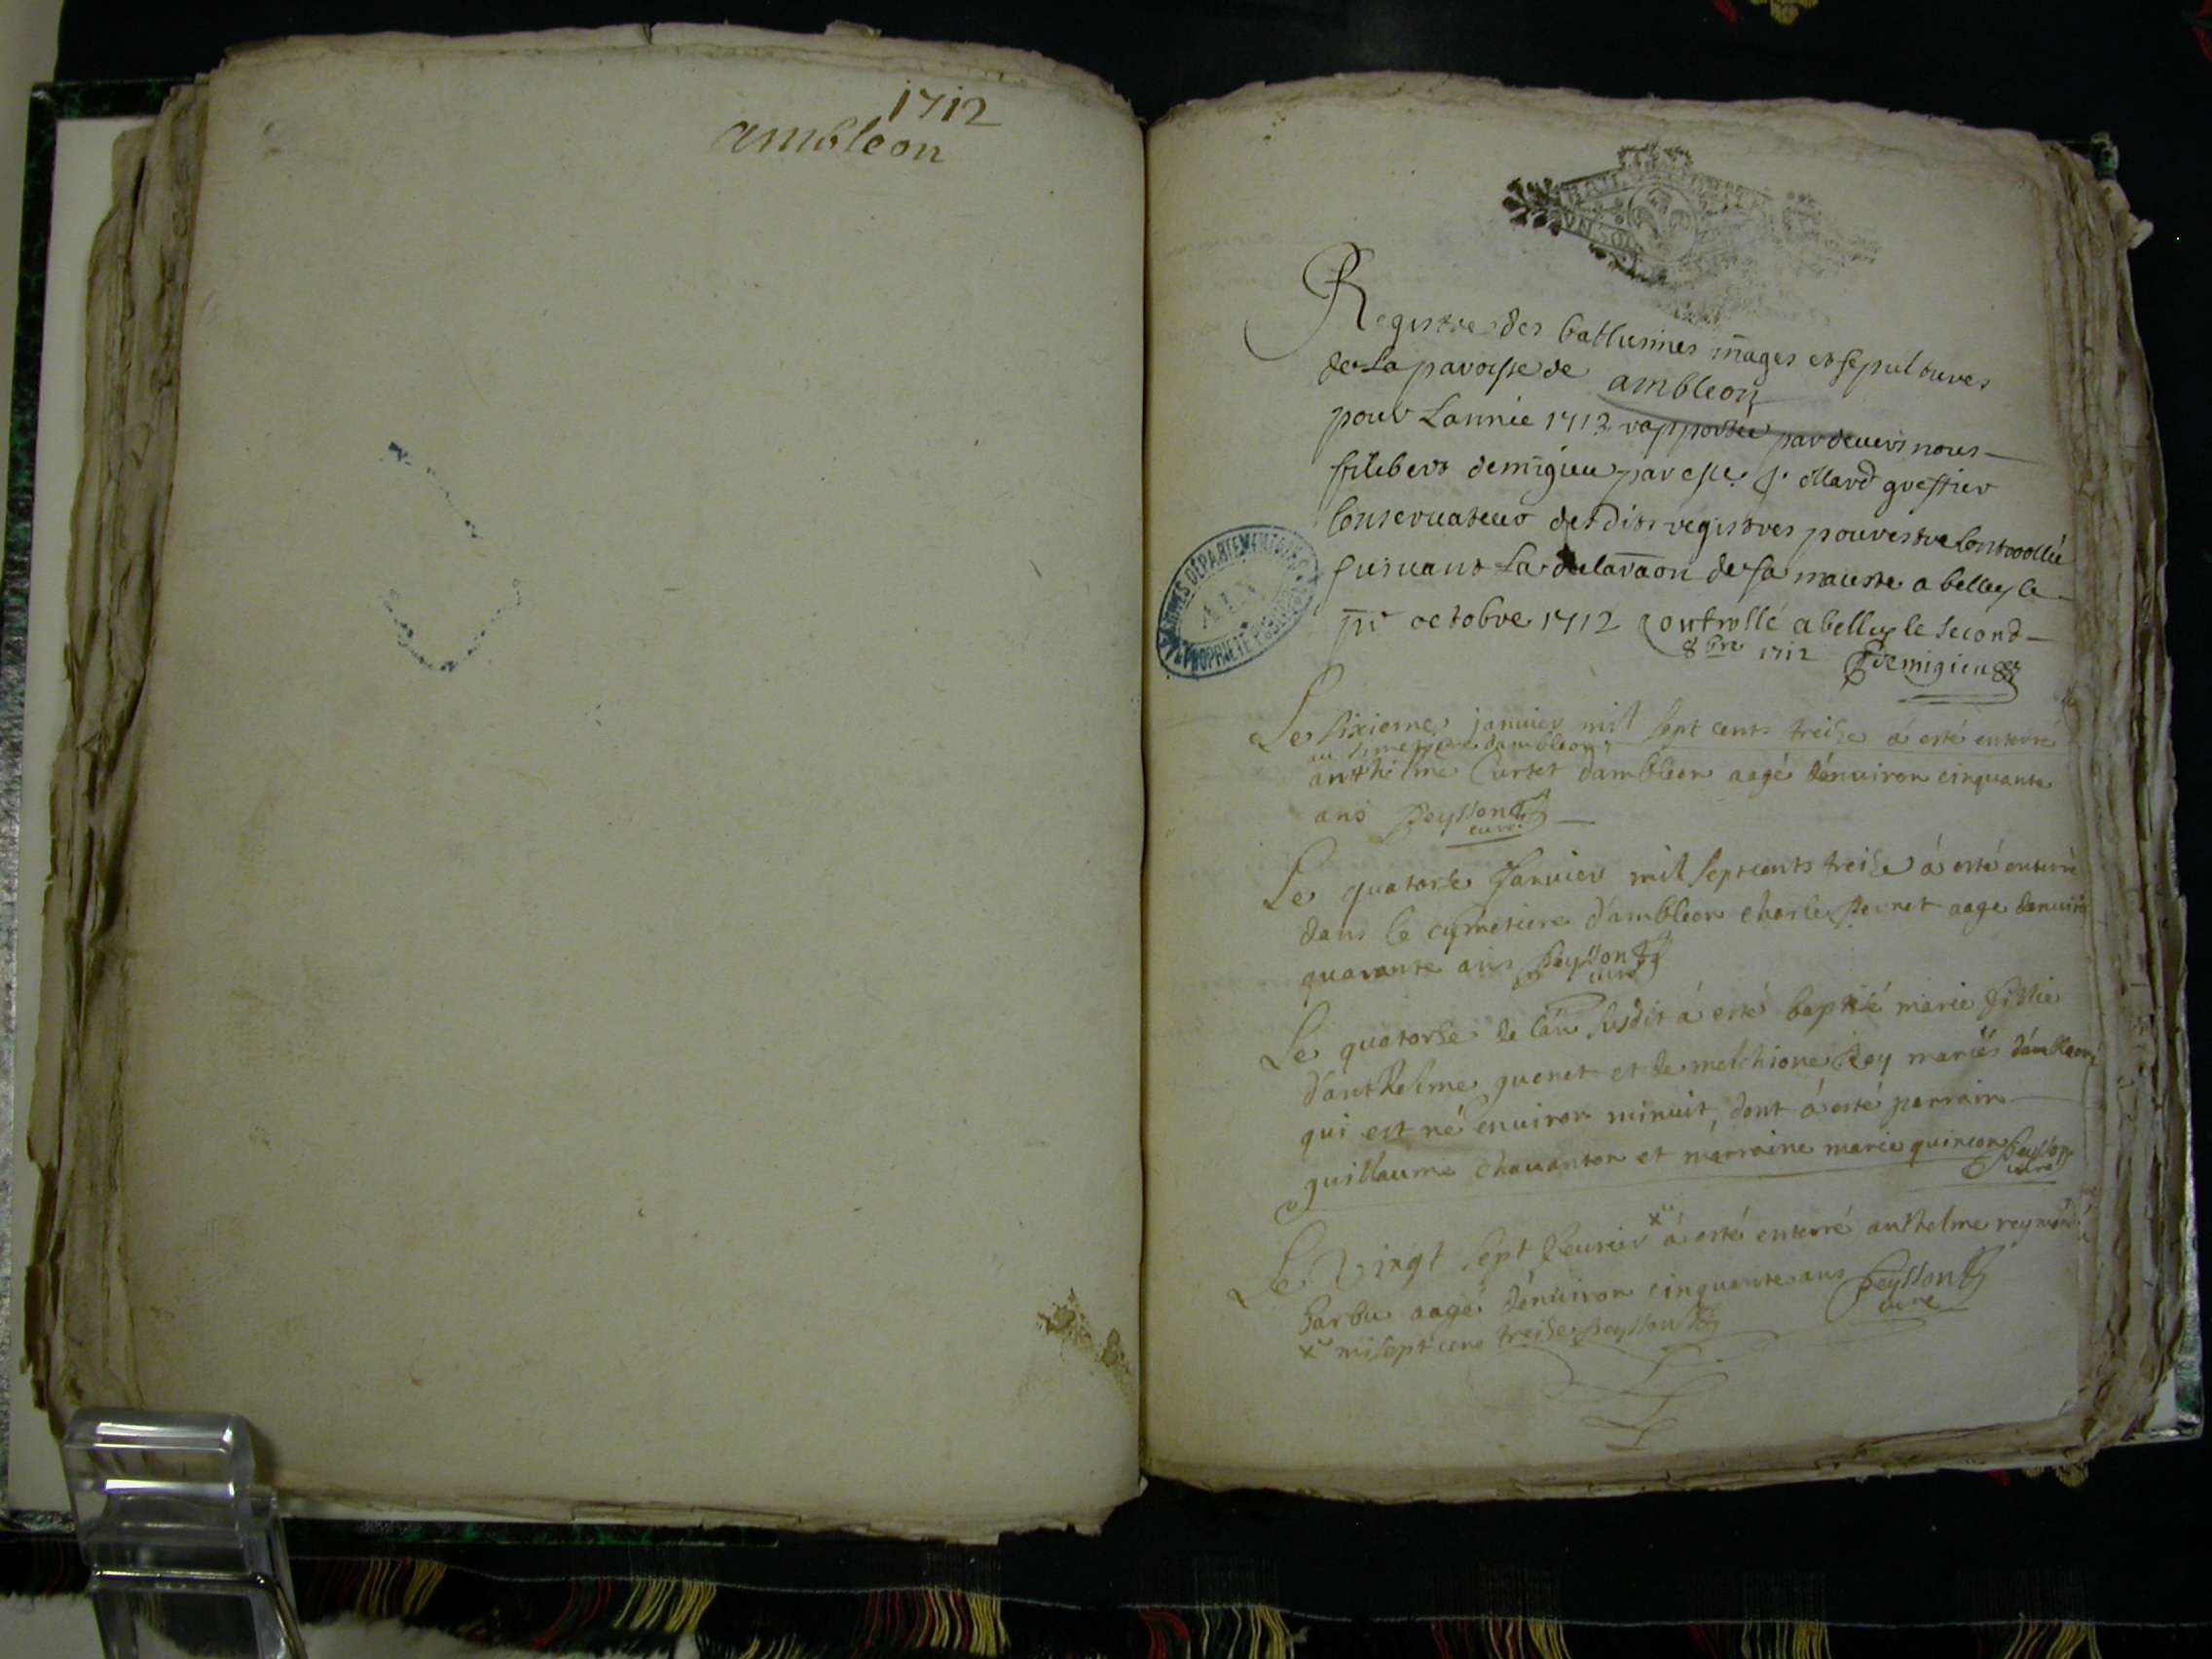 1712
ambleon
Registre des battesmes mages et sepultures
de La paroisse de ambleon
pour Lannée 1713 rapportée pardevers nous
filibert demigieu par esté Sr. Mard greffier
Conservateur desdits registres pour estre Controollé
suivant La declaraon de sa maiesté a belley le
octobre 1712 Controllé a belley le second
8bre 1712 Demigieu
Le sixieme janvier mil sept cents treise á esté enterré
au simetiere dambleon
anthelme Curtet dambleon aagé dénuiron cinquante
ans Peysson
curé
Le quatorse Januier mil septcents treise á esté enterré
dans le cymetiere d'ambleon charle Pernet aage denuiro
quarante ans Peysson
curé
Le quatorse de lan susdit á esté baptisé marie fillie
d'anthelme guenet et de melchione Rey mariés dámbleon
qui est né enuiron minuit, dont á esté parrain
guillaume Chauanton et marraine marie quinson Peysson
curé
Le Vingt sept feurier x á esté enterré anthelme reymond
barbu aagé dénuiron cinquante ans Peysson
curé
x misept cens treise Peysson
ARCHIVES DÉPARTEMENTALES
AIN
PROPRIÉTÉ PUBLIQUE